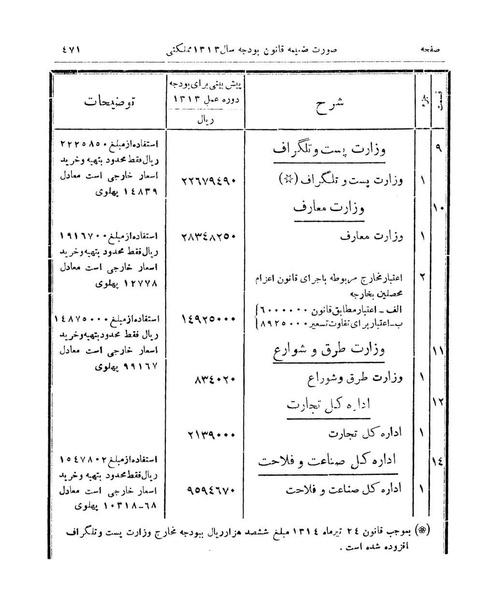 صفحه
صورت ضمیمه قانون بودجه سال ۱۳۱۳ مملکتی
۴۷۱
قسمت
جزء
شرح
پیش بینی برای بودجه
دوره عمل ۱۳۱۳
ریال
توضیحات
۹
وزارت پست و تلگراف
استفاده از مبلغ ۲۲۲۵۸۵۰
ریال فقط محدود بتهیه و خرید
۱
وزارت پست و تلگراف (※)
۲۲۶۷۹۴۹۰
اسعار خارجی است معادل
۱۴۸۳۹ پهلوی
۱۰
وزارت معارف
۱
وزارت معارف
۲۸۳۴۸۲۵۰
استفاده از مبلغ ۱۹۱۶۷۰۰
ریال فقط محدود بتهیه و خرید
اسعار خارجی است معادل
۱۲۷۷۸ پهلوی
۲
اعتبار مخارج مربوطه باجرای قانون اعزام
محصلین بخارجه
الف ـ اعتبار مطابق قانون ۶۰۰۰۰۰۰
ب ـ اعتبار برای تفاوت تسعیر ۸۹۲۵۰۰۰
۱۴۹۲۵۰۰۰
استفاده از مبلغ ۱۴۸۷۵۰۰۰
ریال فقط محدود بتهیه و خرید
اسعار خارجی است معادل
۹۹۱۶۷ پهلوی
۱۱
وزارت طرق و شوارع
۱
وزارت طرق و شوراع
۸۳۴۰۲۰
۱۲
اداره کل تجارت
۱
اداره کل تجارت
۲۱۳۹۰۰۰
۱۴
اداره کل صناعت و فلاحت
استفاده از مبلغ ۱۵۴۷۸۰۲
ریال فقط محدود بتهیه و خرید
۱
اداره کل صناعت و فلاحت
۹۵۹۴۶۷۰
اسعار خارجی است معادل
۱۰۳۱۸-۶۸ پهلوی
(※) بموجب قانون ۲۴ تیرماه ۱۳۱۴ مبلغ ششصد هزار ریال ببودجه مخارج وزارت پست و تلگراف
افزوده شده است .